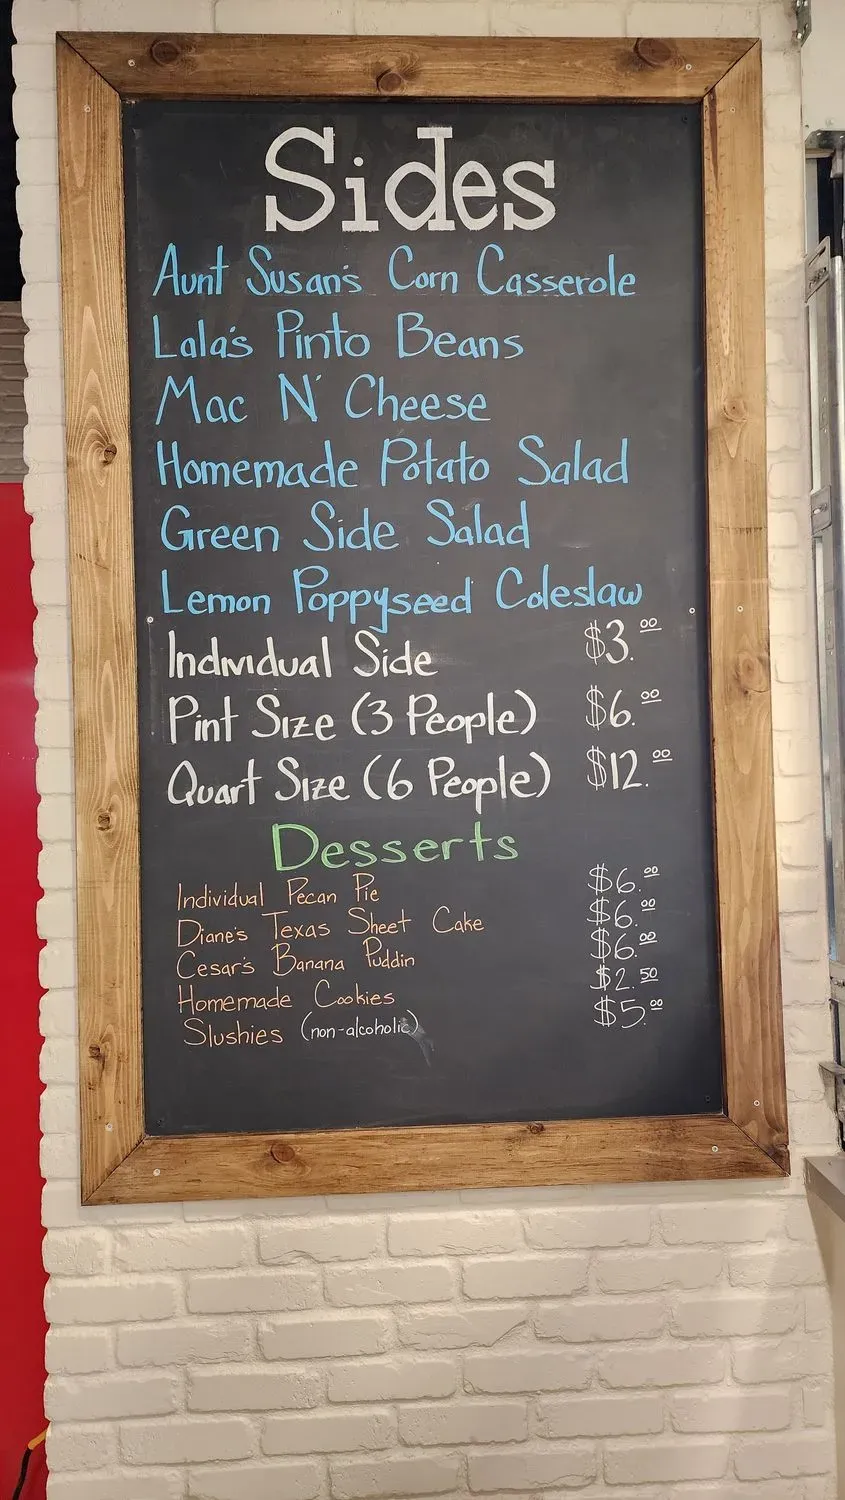 Sides
Aunt Susan's Corn Casserole
Lala's Pinto Beans
Mac N' Cheese
Homemade Potato Salad
Green Side Salad
Lemon Poppyseed Coleslaw
Individual Side $3.00
Pint Size (3 People) $6.00
Quart Size (6 People) $12.00
Desserts
Individual Pecan Pie $6.00
Diane's Texas Sheet Cake $6.00
Cesar's Banana Puddin $6.00
Homemade Cookies $2.50
Slushies (non-alcoholic) $5.00